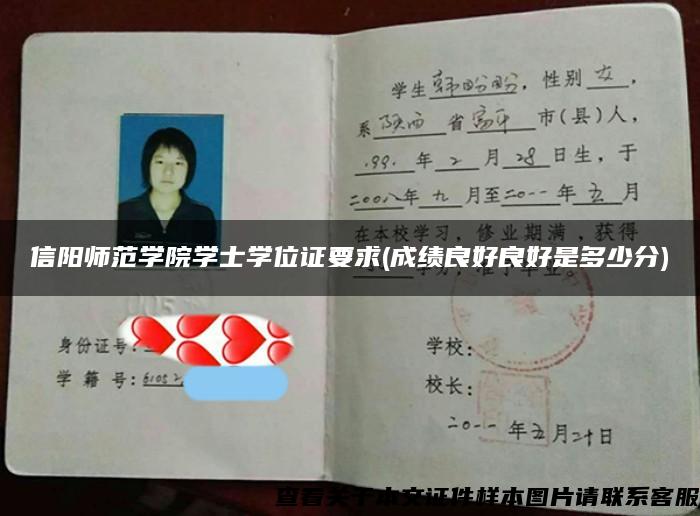 学生韩盼盼，性别女，
系陕西省富平市(县)人，
1991年2月28日生，于
二00八年九月至二0一一年五月
在本校学习，修业期满，获得
信阳师范学院学士学位证要求(成绩良好良好是多少分)
身份证号：
学籍号：6105
学校：
校长：
二0一一年五月二十日
查看关于本文证件样本图片请联系客服